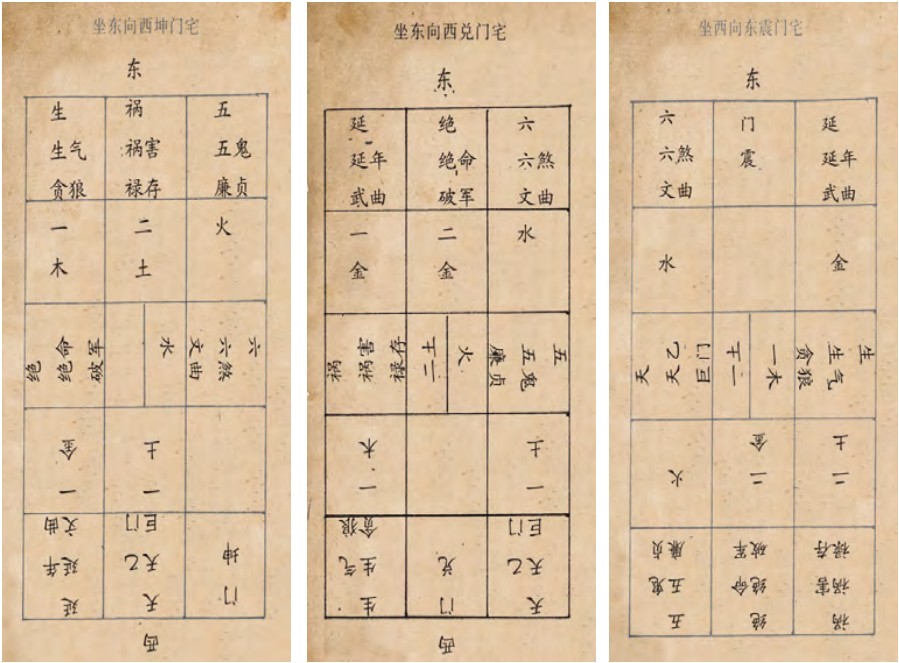 坐东向西坤门宅
东
生 祸 五
生气 祸害 五鬼
贪狼 禄存 廉贞
一 二 火
木 土
绝 绝命 水 文曲 六煞 六
金 土
一 一
文曲 巨门
延年 天乙 坤
延 天 门
西
坐东向西兑门宅
东
延 绝 六
延年 绝命 六煞
武曲 破军 文曲
一 二 水
金 金
祸 祸害 禄存 土二 火 廉贞 五鬼 五
木 土
一 一
贪狼 巨门
生气 兑 天乙
生 门 天
西
坐西向东震门宅
东
六 门 延
六煞 震 延年
文曲 武曲
水 金
天 天乙 巨门 土二 一木 贪狼 生气 生
金 土
火 二 二
廉贞 破军 禄存
五鬼 绝命 祸害
五 绝 祸